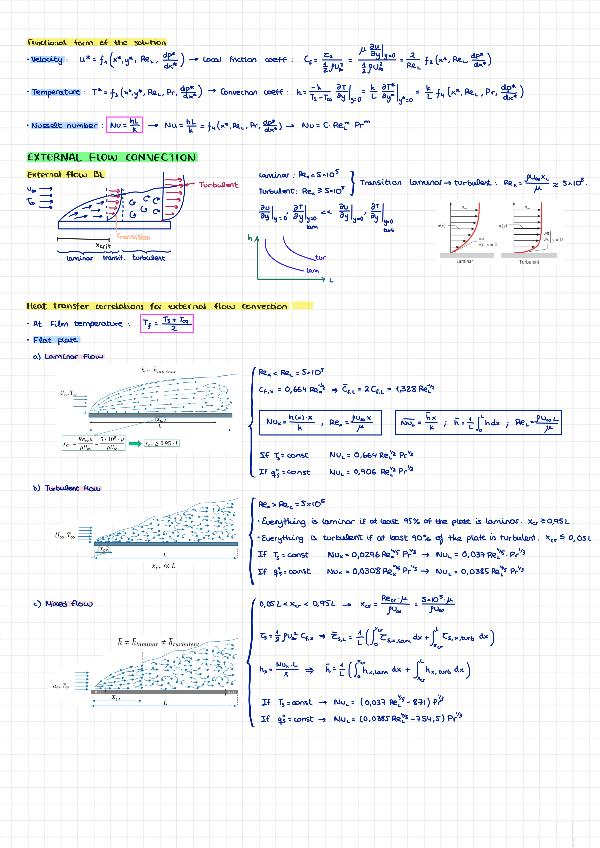 Functional form of the solution
· Velocity: U* = f₁(x*, y*, Re_L, dp*/dx*) → Local friction coeff: C_f = τ_s / (½ρU∞²) = μ ∂u/∂y|_{y=0} / (½ρU∞²) = 2/Re_L f₂(x*, Re_L, dp*/dx*)
· Temperature: T* = f₃(x*, y*, Re_L, Pr, dp*/dx*) → Convection coeff: h = -k/(T_s - T∞) ∂T/∂y|_{y=0} = k/L ∂T*/∂y*|_{y*=0} = k/L f₄(x*, Re_L, Pr, dp*/dx*)
· Nusselt number: Nu = hL/k → Nu = hL/k = f₄(x*, Re_L, Pr, dp*/dx*) → Nu = C·Re_L^m Pr^n
EXTERNAL FLOW CONVECTION
External flow BL
U∞
T∞
Turbulent
Transition
x_crit
laminar transit. turbulent
Laminar: Re_x < 5×10⁵
Turbulent: Re_x ≥ 5×10⁵
Transition laminar → turbulent: Re_x = ρU∞x_c/μ ≈ 5×10⁵.
∂u/∂y|_{y=0}, ∂T/∂y|_{y=0} lam << ∂u/∂y|_{y=0}, ∂T/∂y|_{y=0} turb
h
tur
lam
L
Laminar
Turbulent
Heat transfer correlations for external flow convection
· At Film temperature: T_f = (T_s + T∞)/2
· Flat plate
a) Laminar flow
h̄ = h̄_laminar
U∞, T∞
x_cr
L
x_cr = Re_cr μ/ρU∞ = 5·10⁵·μ/ρU∞ ⇒ x_cr ≥ 0.95·L
Re_x < Re_c = 5×10⁵
C_f,x = 0,664 Re_x^-1/2 → C̄_f,L = 2C_f,L = 1,328 Re_L^-1/2
Nu_x = h(x)·x/k , Re_x = ρU∞x/μ
N̄u_L = h̄x/k ; h̄ = 1/L ∫₀^L h dx ; Re_L = ρU∞L/μ
If T_s = const Nu_L = 0,664 Re_L^1/2 Pr^1/3
If q_s" = const Nu_L = 0,906 Re_L^1/2 Pr^1/3
b) Turbulent flow
U∞, T∞
x_cr
L
x_cr ≪ L
Re_x > Re_c = 5×10⁵
· Everything is laminar if at least 95% of the plate is laminar. x_cr ≥ 0,95L
· Everything is turbulent if at least 90% of the plate is turbulent. x_cr ≤ 0,05L
If T_s = const Nu_x = 0,0296 Re_x^4/5 Pr^1/3 → Nu_L = 0,037 Re_L^4/5 · Pr^1/3
If q_s" = const Nu_x = 0,0308 Re_x^4/5 Pr^1/3 → Nu_L = 0,0385 Re_L^4/5 Pr^1/3
c) Mixed flow
h̄ ≠ h̄_laminar ≠ h̄_turbulent
u∞, T∞
x_cr
L
0,05L < x_cr < 0,95L → x_cr = Re_cr·μ/ρU∞ = 5×10⁵·μ/ρU∞
τ_s = ½ρU∞² C_f,x ⇒ τ̄_s,L = 1/L (∫₀^{x_cr} τ_s,x,lam dx + ∫_{x_cr}^L τ_s,x,turb dx)
h_x = Nu_x·k/x ⇒ h̄ = 1/L (∫₀^{x_cr} h_x,lam dx + ∫_{x_cr}^L h_x,turb dx)
If T_s = const → Nu_L = (0,037 Re_L^4/5 - 871) Pr^1/3
If q_s" = const → Nu_L = (0,0385 Re_L^4/5 - 754,5) Pr^1/3